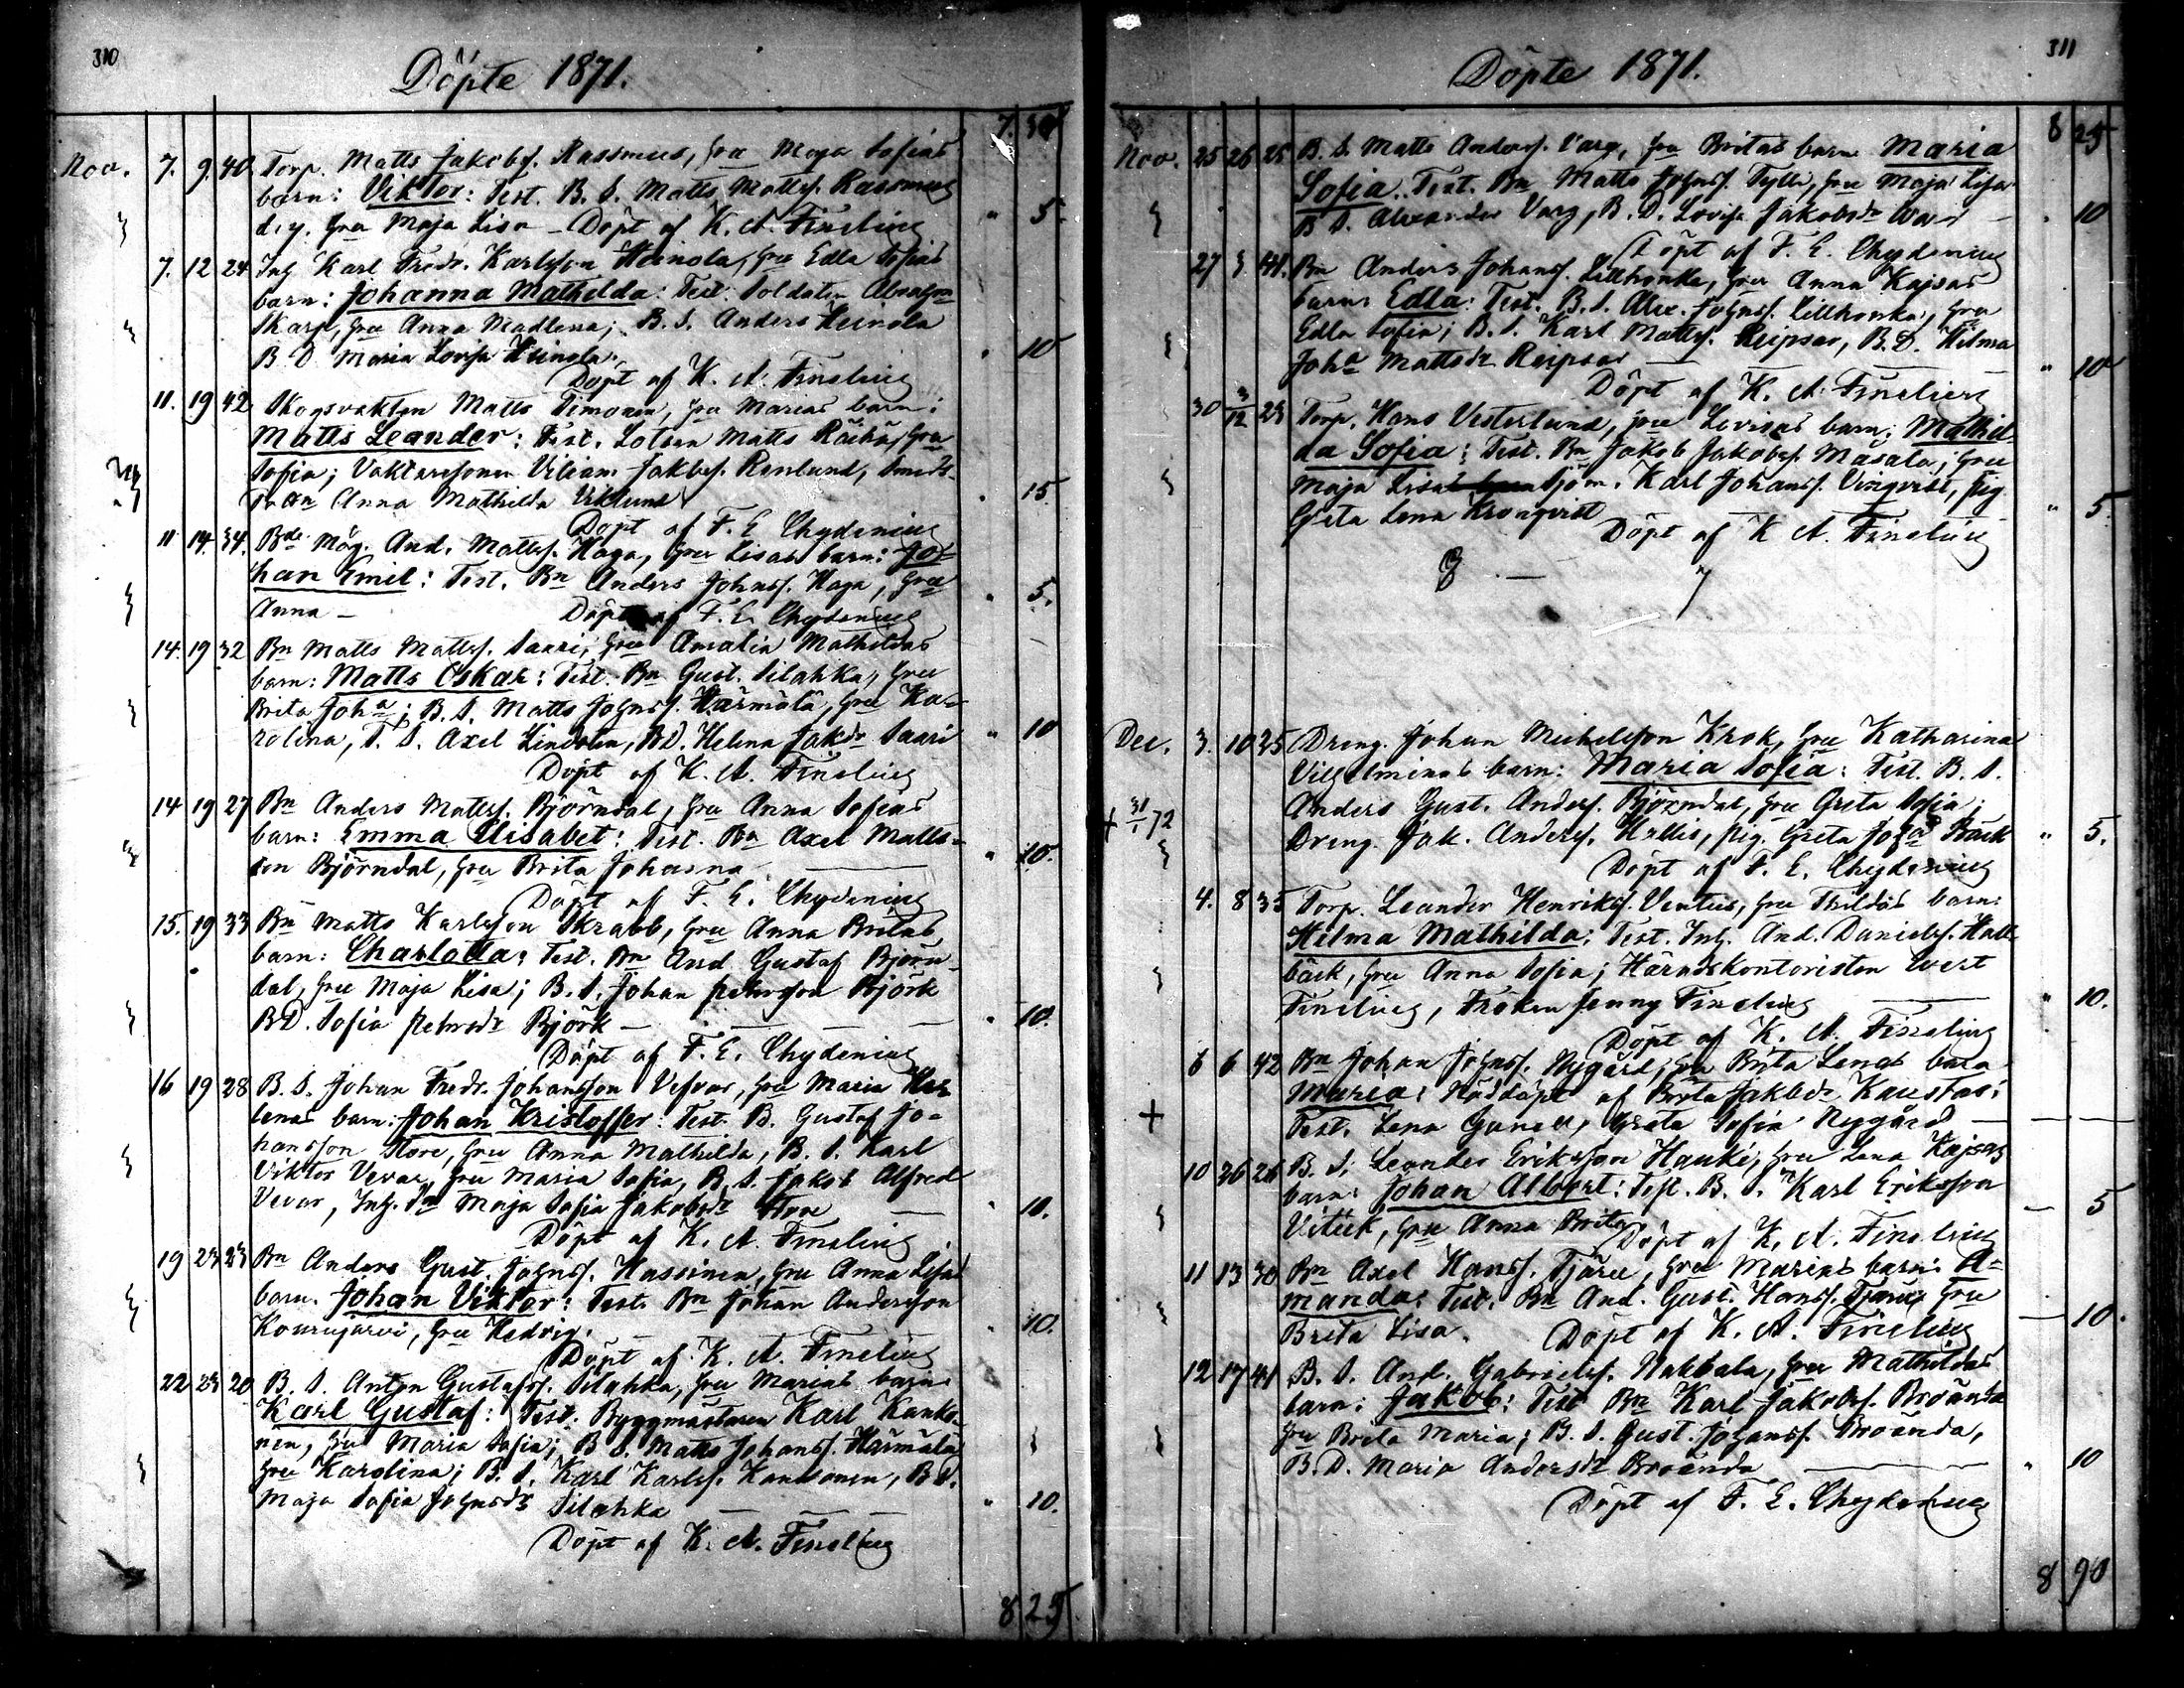 310
Döpte 1871.
7. 50
Nov. 7. 9. 40. Torp. Matts Jakobss. Rassmus, hru Maja Sofias
barn: Viktor: Test. B. S. Matts Mattss. Rassmus
d. y. hru Maja Lisa - Döpt af K. A. Finelius " 5.
7. 12 24 Inh. Karl Fredr. Karlsson Heinola, hru Edla Sofias
barn: Johanna Mathilda: Test. Soldaten Absalon
Skarp, hru Anna Madlena; B. S. Anders Heinola
B D Maria Lovisa Heinola; " 10
Döpt af K. A. Finelius
11. 19 42 Skogsvakten Matts Timonen, hru Marias barn:
Matts Leander: Test. Lotsen Matts Räihä, hru
Sofia; Vaktarsonen Viliam Jakobss. Renlund,
Anna Mathilda Viklund " 15
Döpt af F. E Chydenius
11 14. 34. Bde Måg. And. Mattss. Haga, hru Lisas barn: Jo=
han Emil: Test. Bn Anders Johnss. Haga, hru
Anna - Döpt af F. E. Chydenius " 5.
14. 19 32 Bn Matts Mattss. Saari, hru Amalia Mathildas
barn: Matts Oskar: Test. Bn Gust. Silahka, hru
Brita Joha; B. S. Matts Johnss. Härmälä, hru Ka=
rolina, T. S. Axel Lindsten, BD. Helena Jakdr Saari " 10
Döpt af K. A. Finelius
14 19 27 Bn Anders Mattss. Björndal, hru Anna Sofias
barn: Emma Elisabet: Test. Bn Axel Matts=
son Björndal, hru Brita Johanna " 10.
Döpt af F. E. Chydenius
15. 19 33 Bn Matts Karlsson Skrabb, hru Anna Britas
barn: Charlotta: Test. Bn And Gustaf Björn=
dal, hru Maja Lisa; B. S. Johan Petersson Björk
BD. Sofia Petersdr Björk - " 10.
Döpt af F. E. Chydenius
16 19 28 B. S. Johan Fredr. Johansson Vefvar, hru Maria He=
lenas barn: Johan Kristoffer: Test. B. Gustaf Jo=
hansson Store, hru Anna Mathilda, B. S. Karl
Viktor Vevar, hru Maria Sofia, B. S. Jakob Alfred
Vevar, Inh. Maja Sofia Jakobsdr Store " 10.
Döpt af K. A. Finelius
19 23 23 Bn Anders Gust. Johnss. Hassinen, hru Anna Lisas
barn. Johan Viktor: Test. Bn Johan Andersson
Kourujärvi, hru Hedvig. " 10.
Döpt af K. A. Finelius
22 23 20 B. S. Anton Gustafss. Silahka, hru Marias barn
Karl Gustaf: Test. Byggmästaren Karl Kanko=
nen, hru Maria Sofia; B S. Matts Johanss. Härmälä
hru Karolina; B. S. Karl Karlss. Kankonen, B D.
Maja Sofia Johnsdr Silahka " 10.
Döpt af K. A. Finelius
8 25
311
Döpte 1871.
8 25
Nov. 25 26 25 B. S. Matts Anderss. Varg, hru Britas barn Maria
Sofia. Test. Bn Matts Johnss. Tylli, hru Maja Lisa
B S. Alexander Varg, B. D. Lovisa Jakobsdr " 10
Döpt af F. E. Chydenius
27 3 41. Bn Anders Johanss. Lillhonka, hru Anna Kajsas
barn: Edla: Test. B. S. Alex. Johnss. Lillhonka, hru
Edla Sofia; B. S. Karl Mattss. Reipsar, B. D. Hilma
Joha Mattsdr Reipsar " 10
Döpt af K. A. Finelius
30 3/12 23 Torp. Hans Vesterlund, hru Lovisas barn: Mathil=
da Sofia: Test. Bn Jakob Jakobss. Måsala, hru
Maja Lisa Sjöm. Karl Johanss. Vinqvist, pig.
Greta Lena Kronqvist " 5.
Döpt af K A. Finelius
8 - 7
Dec. 3. 10 25 Dreng. Johan Michelsson Krok, hru Katharina
Vilhelminas barn: Maria Sofia: Test. B. S.
Anders Gust. Anderss. Björndal, hru Greta Sofia;
+ 31/1 72 Dreng. Jak. Anderss. Hallis, pig. Greta Joha Bäck " 5.
Döpt af F. E. Chydenius
4. 8 35 Torp. Leander Henrikss. Ventus, hru Thildas barn:
Hilma Mathilda: Test. Inh. And. Danielss. Hall=
bäck, hru Anna Sofia; Häradskontoristen Evert
Finelius, Fröken Jenny Finelius " 10.
Döpt af K. A. Finelius
6 6 42 Bn Johan Johnss. Nygård, hru Brita Lenas barn
Maria: Nöddöpt af Brita Jakobsdr Kaustar:
+ Test. Lena Gunell, Greta Sofia Nygård
10 26 26 B. S. Leander Eriksson Hauki, hru Lena Kajsas
barn: Johan Albert: Test. B. S. Karl Eriksson
Vitick, hru Anna Brita. — 5
Döpt af K. A. Finelius
11 13 30 Bn Axel Hanss. Tjäru, hru Marias barn: A=
manda: Test. Bn And. Gust. Hanss. Tjäru, hru
Brita Lisa. Döpt af K. A. Finelius — 10.
12 17 41 B. S. And. Gabrielss. Nabbala, hru Mathildas
barn: Jakob: Test Bn Karl Jakobss. Broända
hru Brita Maria; B. S. Gust. Johanss. Broända,
B. D. Maria Andersdr Broända " 10
Döpt af F. E. Chydenius
8 90